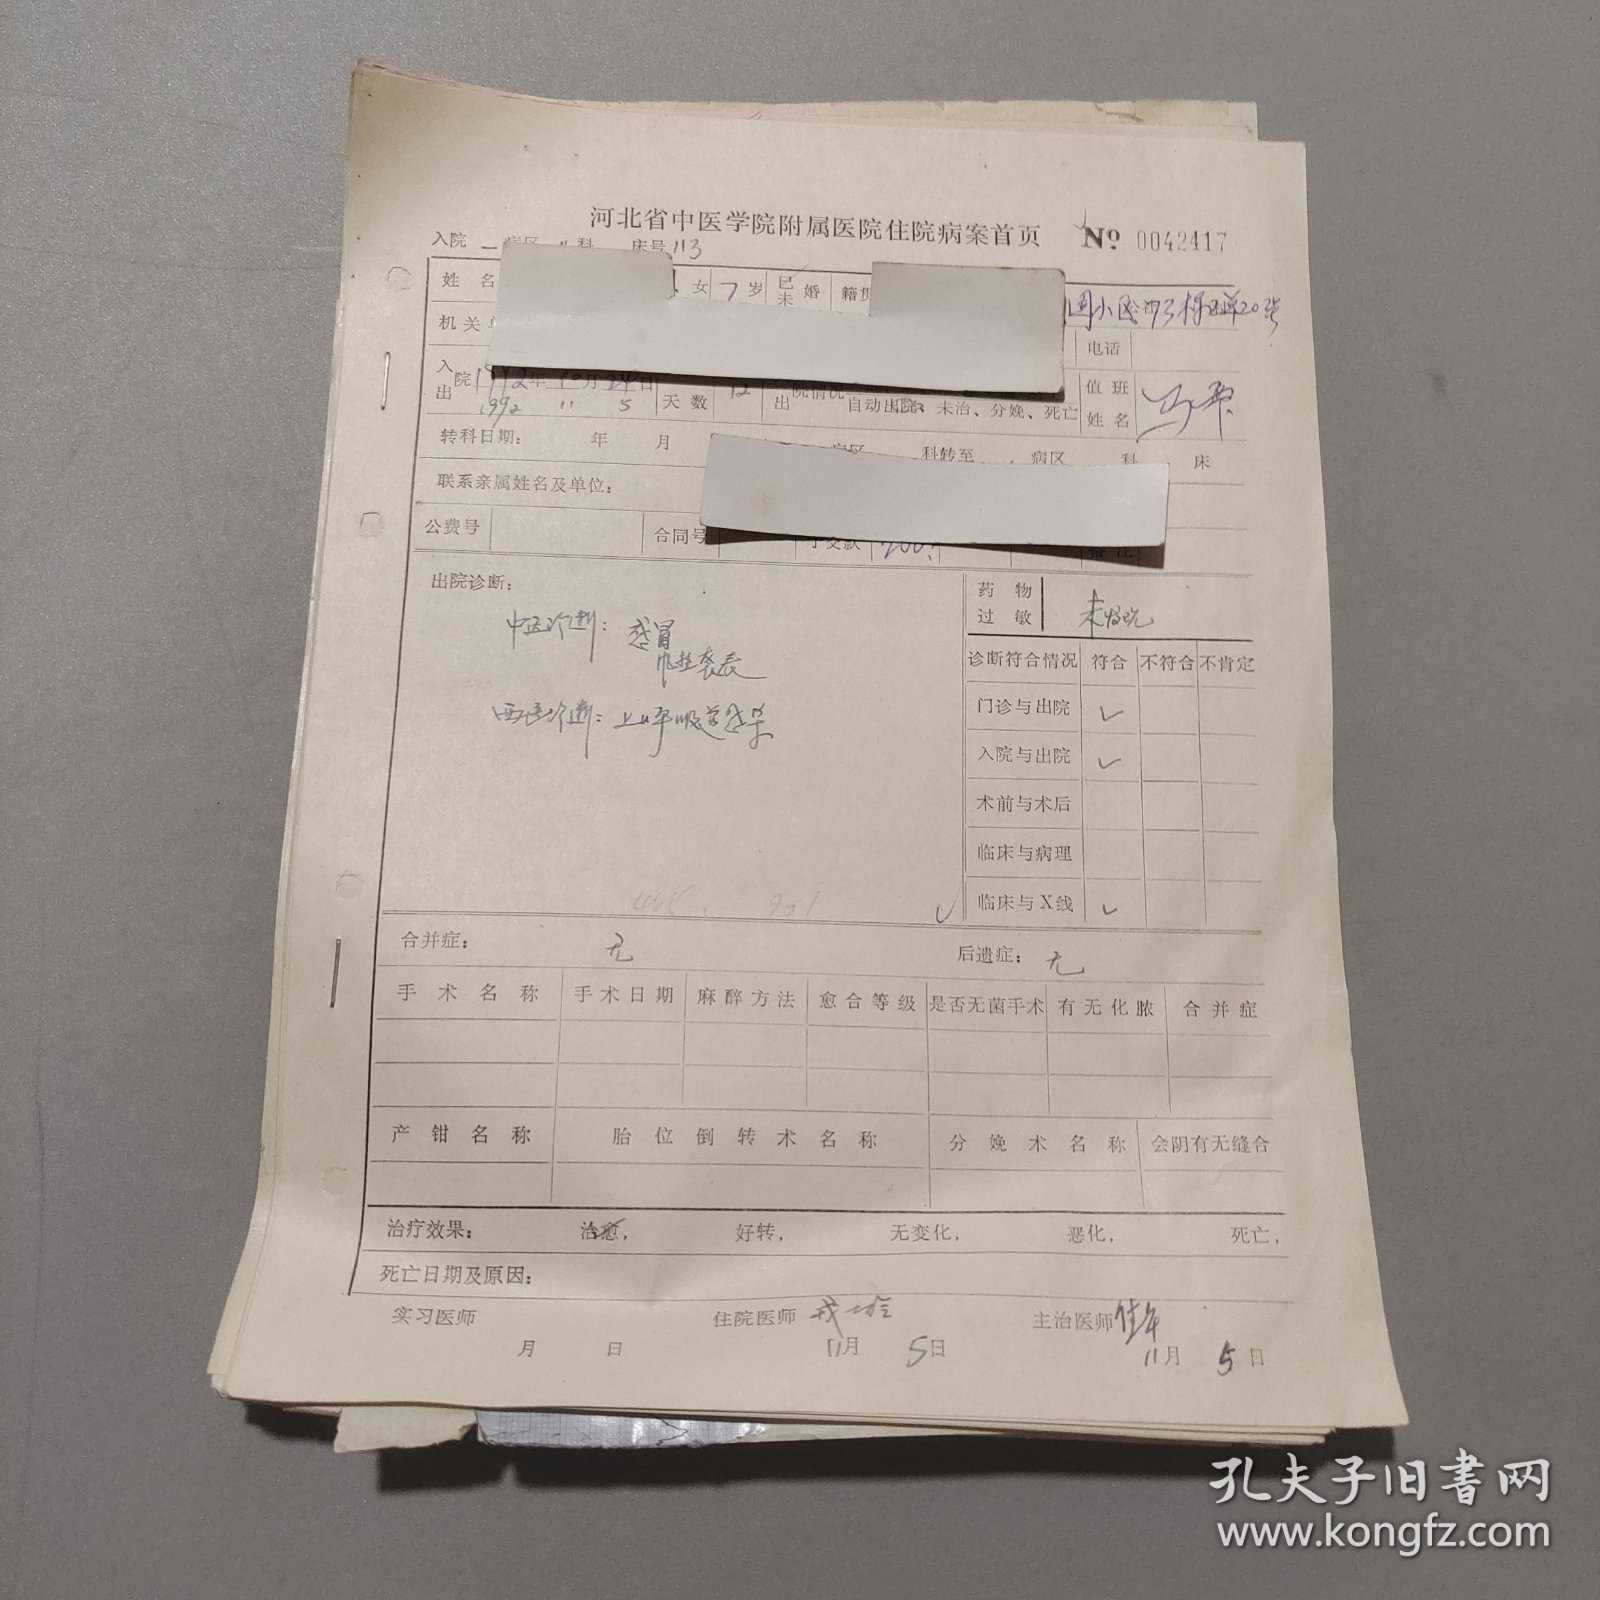 河北省中医学院附属医院住院病案首页 № 0042417
入院 一 病区 科 床号 113
姓名 女 7 岁 已未婚 籍贯
机关单 小区 73 20
电话
入院 1992年 10月 24日 天数 12 出院情况 值班姓名
出 1992 11 5 自动出院、未治、分娩、死亡
转科日期： 年 月 病区 科转至 病区 科 床
联系亲属姓名及单位：
公费号 合同号 预交款 200. 备注
出院诊断： 药物过敏 未发现
中医诊断：感冒
风热袭表
西医诊断：上呼吸道感染
诊断符合情况 符合 不符合 不肯定
门诊与出院 ✓
入院与出院 ✓
术前与术后
临床与病理
临床与X线 ✓
合并症： 无 后遗症： 无
手术名称 手术日期 麻醉方法 愈合等级 是否无菌手术 有无化脓 合并症
产钳名称 胎位倒转术名称 分娩术名称 会阴有无缝合
治疗效果： 治愈， 好转， 无变化， 恶化， 死亡，
死亡日期及原因：
实习医师 住院医师 主治医师
月 日 11月 5日 11月 5日
孔夫子旧书网
www.kongfz.com